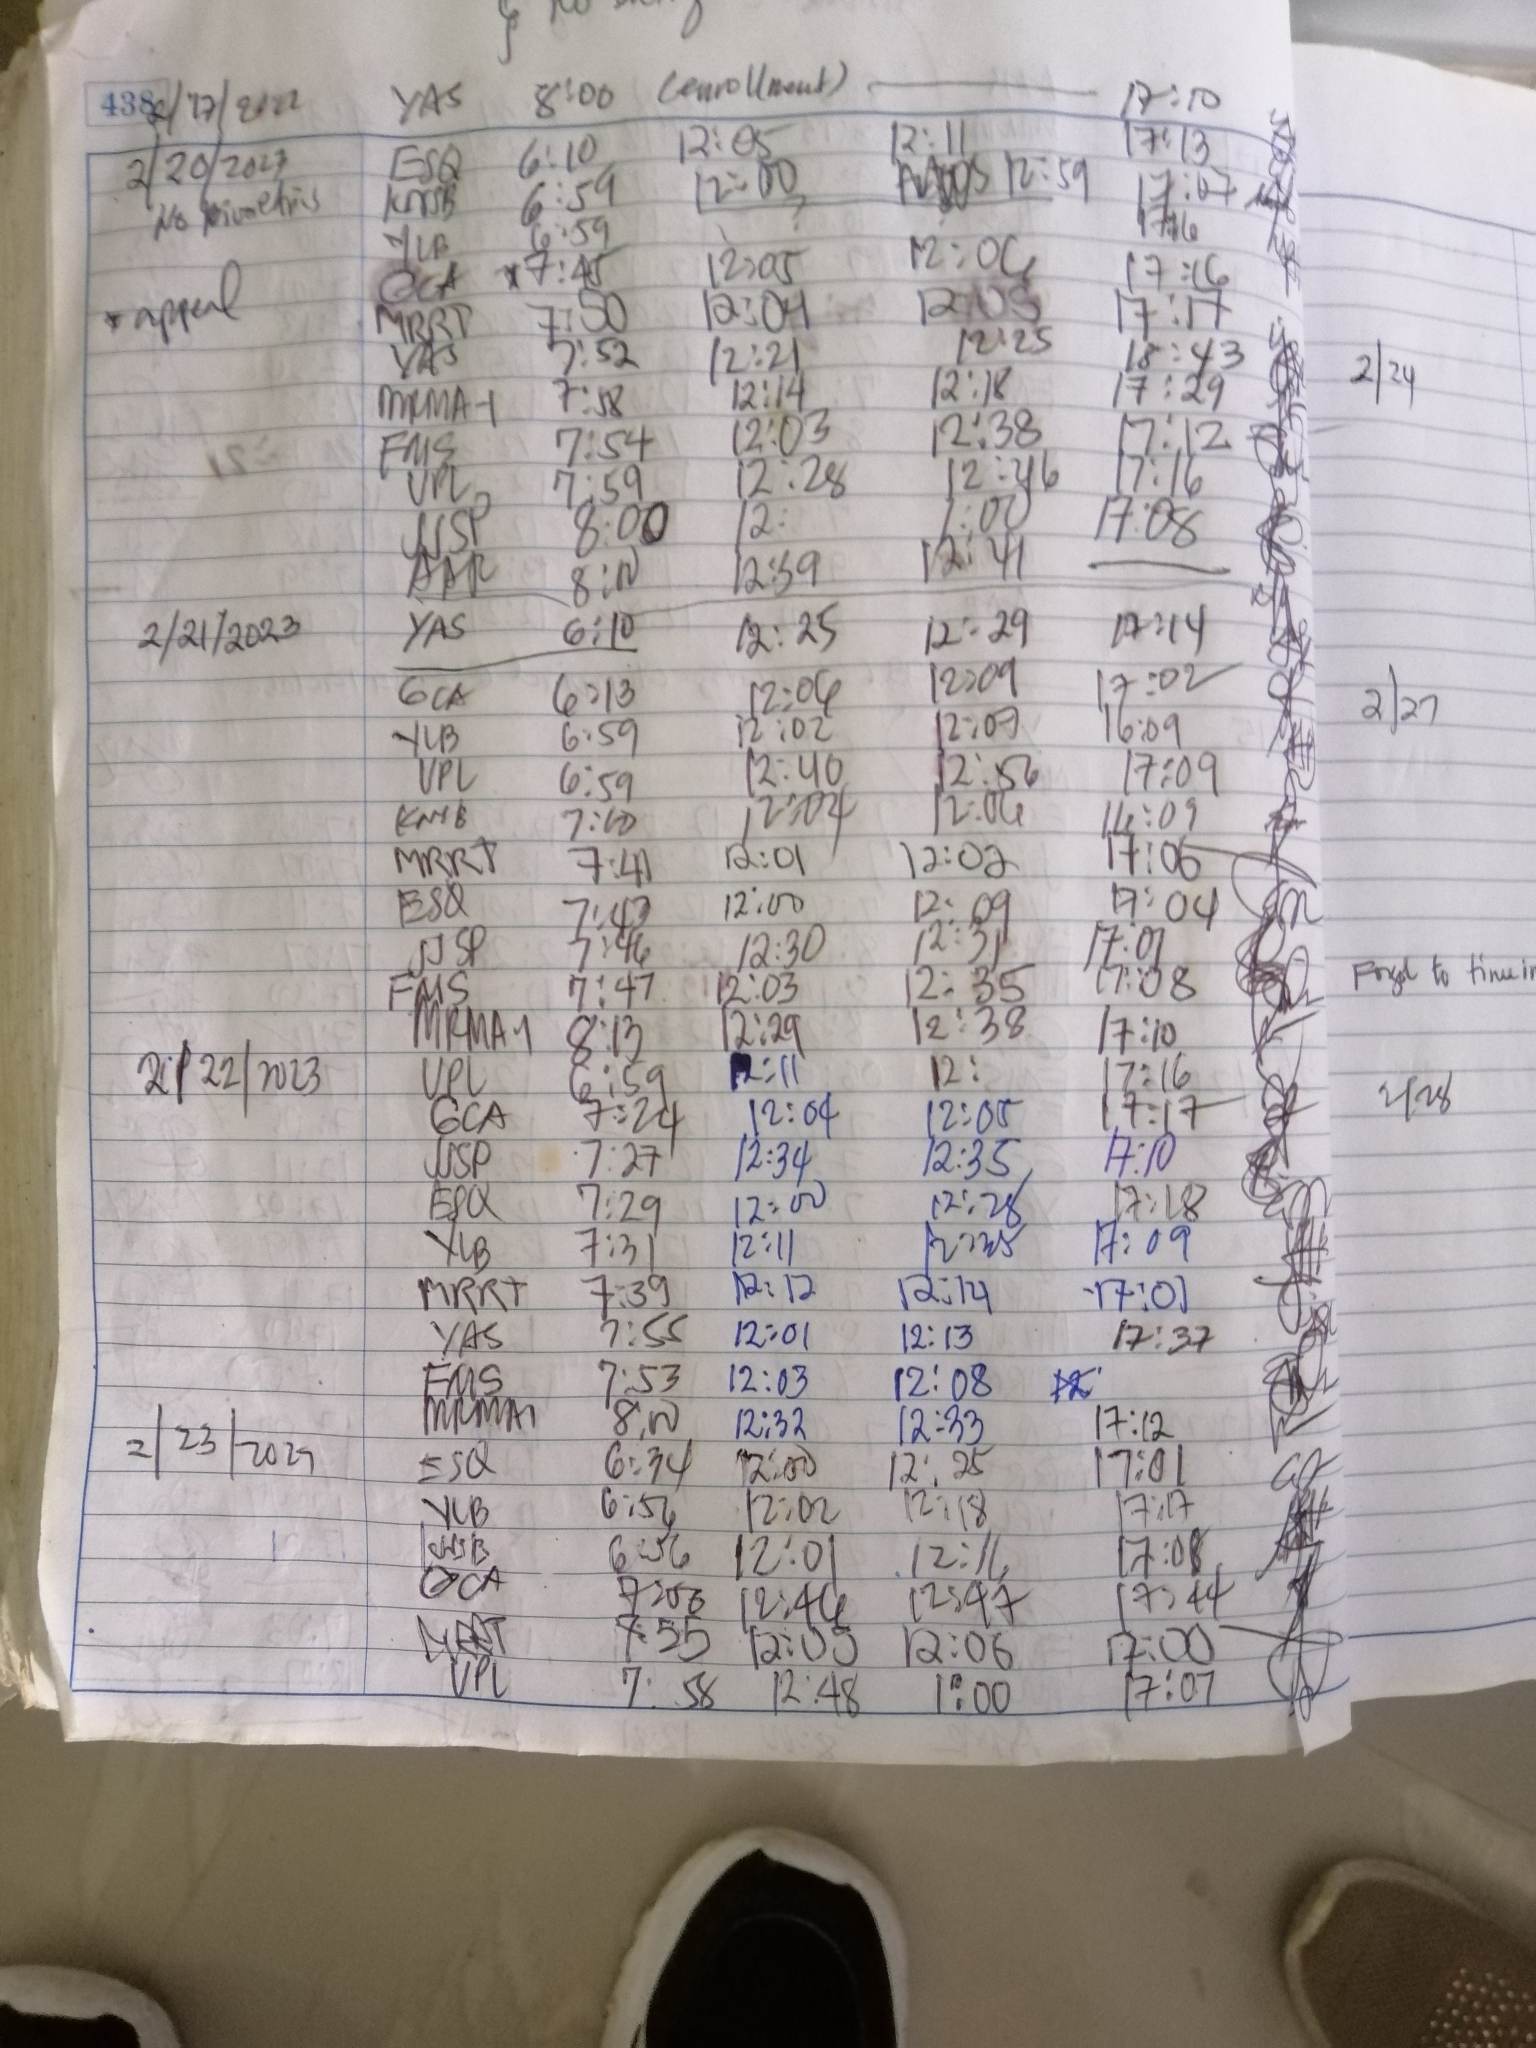 438
YAS 8:00 (enrollment) 17:10
2/20/2023 ESQ 6:10 12:05 12:11 17:13
No Biometrics KMSB 6:59 12:00 12:59 17:07
YLB 6:59 ? 17:16
* appeal GCA *7:45 12:05 12:06 17:16
MRRT 7:50 12:04 12:05 17:17
YAS 7:52 12:21 12:25 18:43
MRMA-1 7:58 12:14 12:18 17:29
FMS 7:54 12:03 12:38 17:12
VPL 7:59 12:28 12:46 17:16
JJSP 8:00 12: 1:00 17:08
AAR 8:10 12:39 12:41
2/21/2023 YAS 6:10 12:25 12:29 17:14
GCA 6:13 12:06 12:09 17:02
YLB 6:59 12:02 12:07 16:09
VPL 6:59 12:40 12:56 17:09
KMSB 7:00 12:04 12:06 16:09
MRRT 7:41 12:01 12:02 17:06
ESQ 7:43 12:00 12:09 17:04
JJSP 7:46 12:30 12:31 17:01
FMS 7:47 12:03 12:35 17:08
MRMA-1 8:13 12:29 12:38 17:10
2/22/2023 VPL 6:59 12:11 12: 17:16
GCA 7:24 12:04 12:05 17:17
JJSP 7:27 12:34 12:35 17:10
ESQ 7:29 12:00 12:28 17:18
YLB 7:31 12:11 17:09
MRRT 7:39 12:12 12:14 17:01
YAS 7:55 12:01 12:13 17:37
FMS 7:53 12:03 12:08
MRMA1 8:10 12:32 12:33 17:12
2/23/2023 ESQ 6:34 12:00 12:25 17:01
YLB 6:56 12:02 12:18 17:17
6:56 12:01 12:16 17:08
GCA 12:46 12:47 17:44
MRRT 7:55 12:05 12:06 17:00
VPL 7:58 12:48 1:00 17:07
2/24
2/27
Forgot to time in
2/28